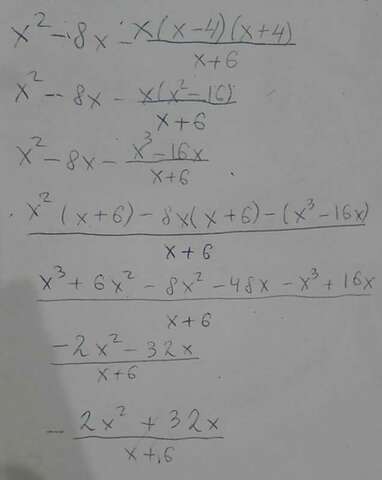 x² - 8x - x(x-4)(x+4)/x+6
x² - 8x - x(x²-16)/x+6
x² - 8x - x³-16x/x+6
x²(x+6) - 8x(x+6) - (x³-16x)/x+6
x³ + 6x² - 8x² - 48x - x³ + 16x/x+6
-2x² - 32x/x+6
- 2x² + 32x/x+6